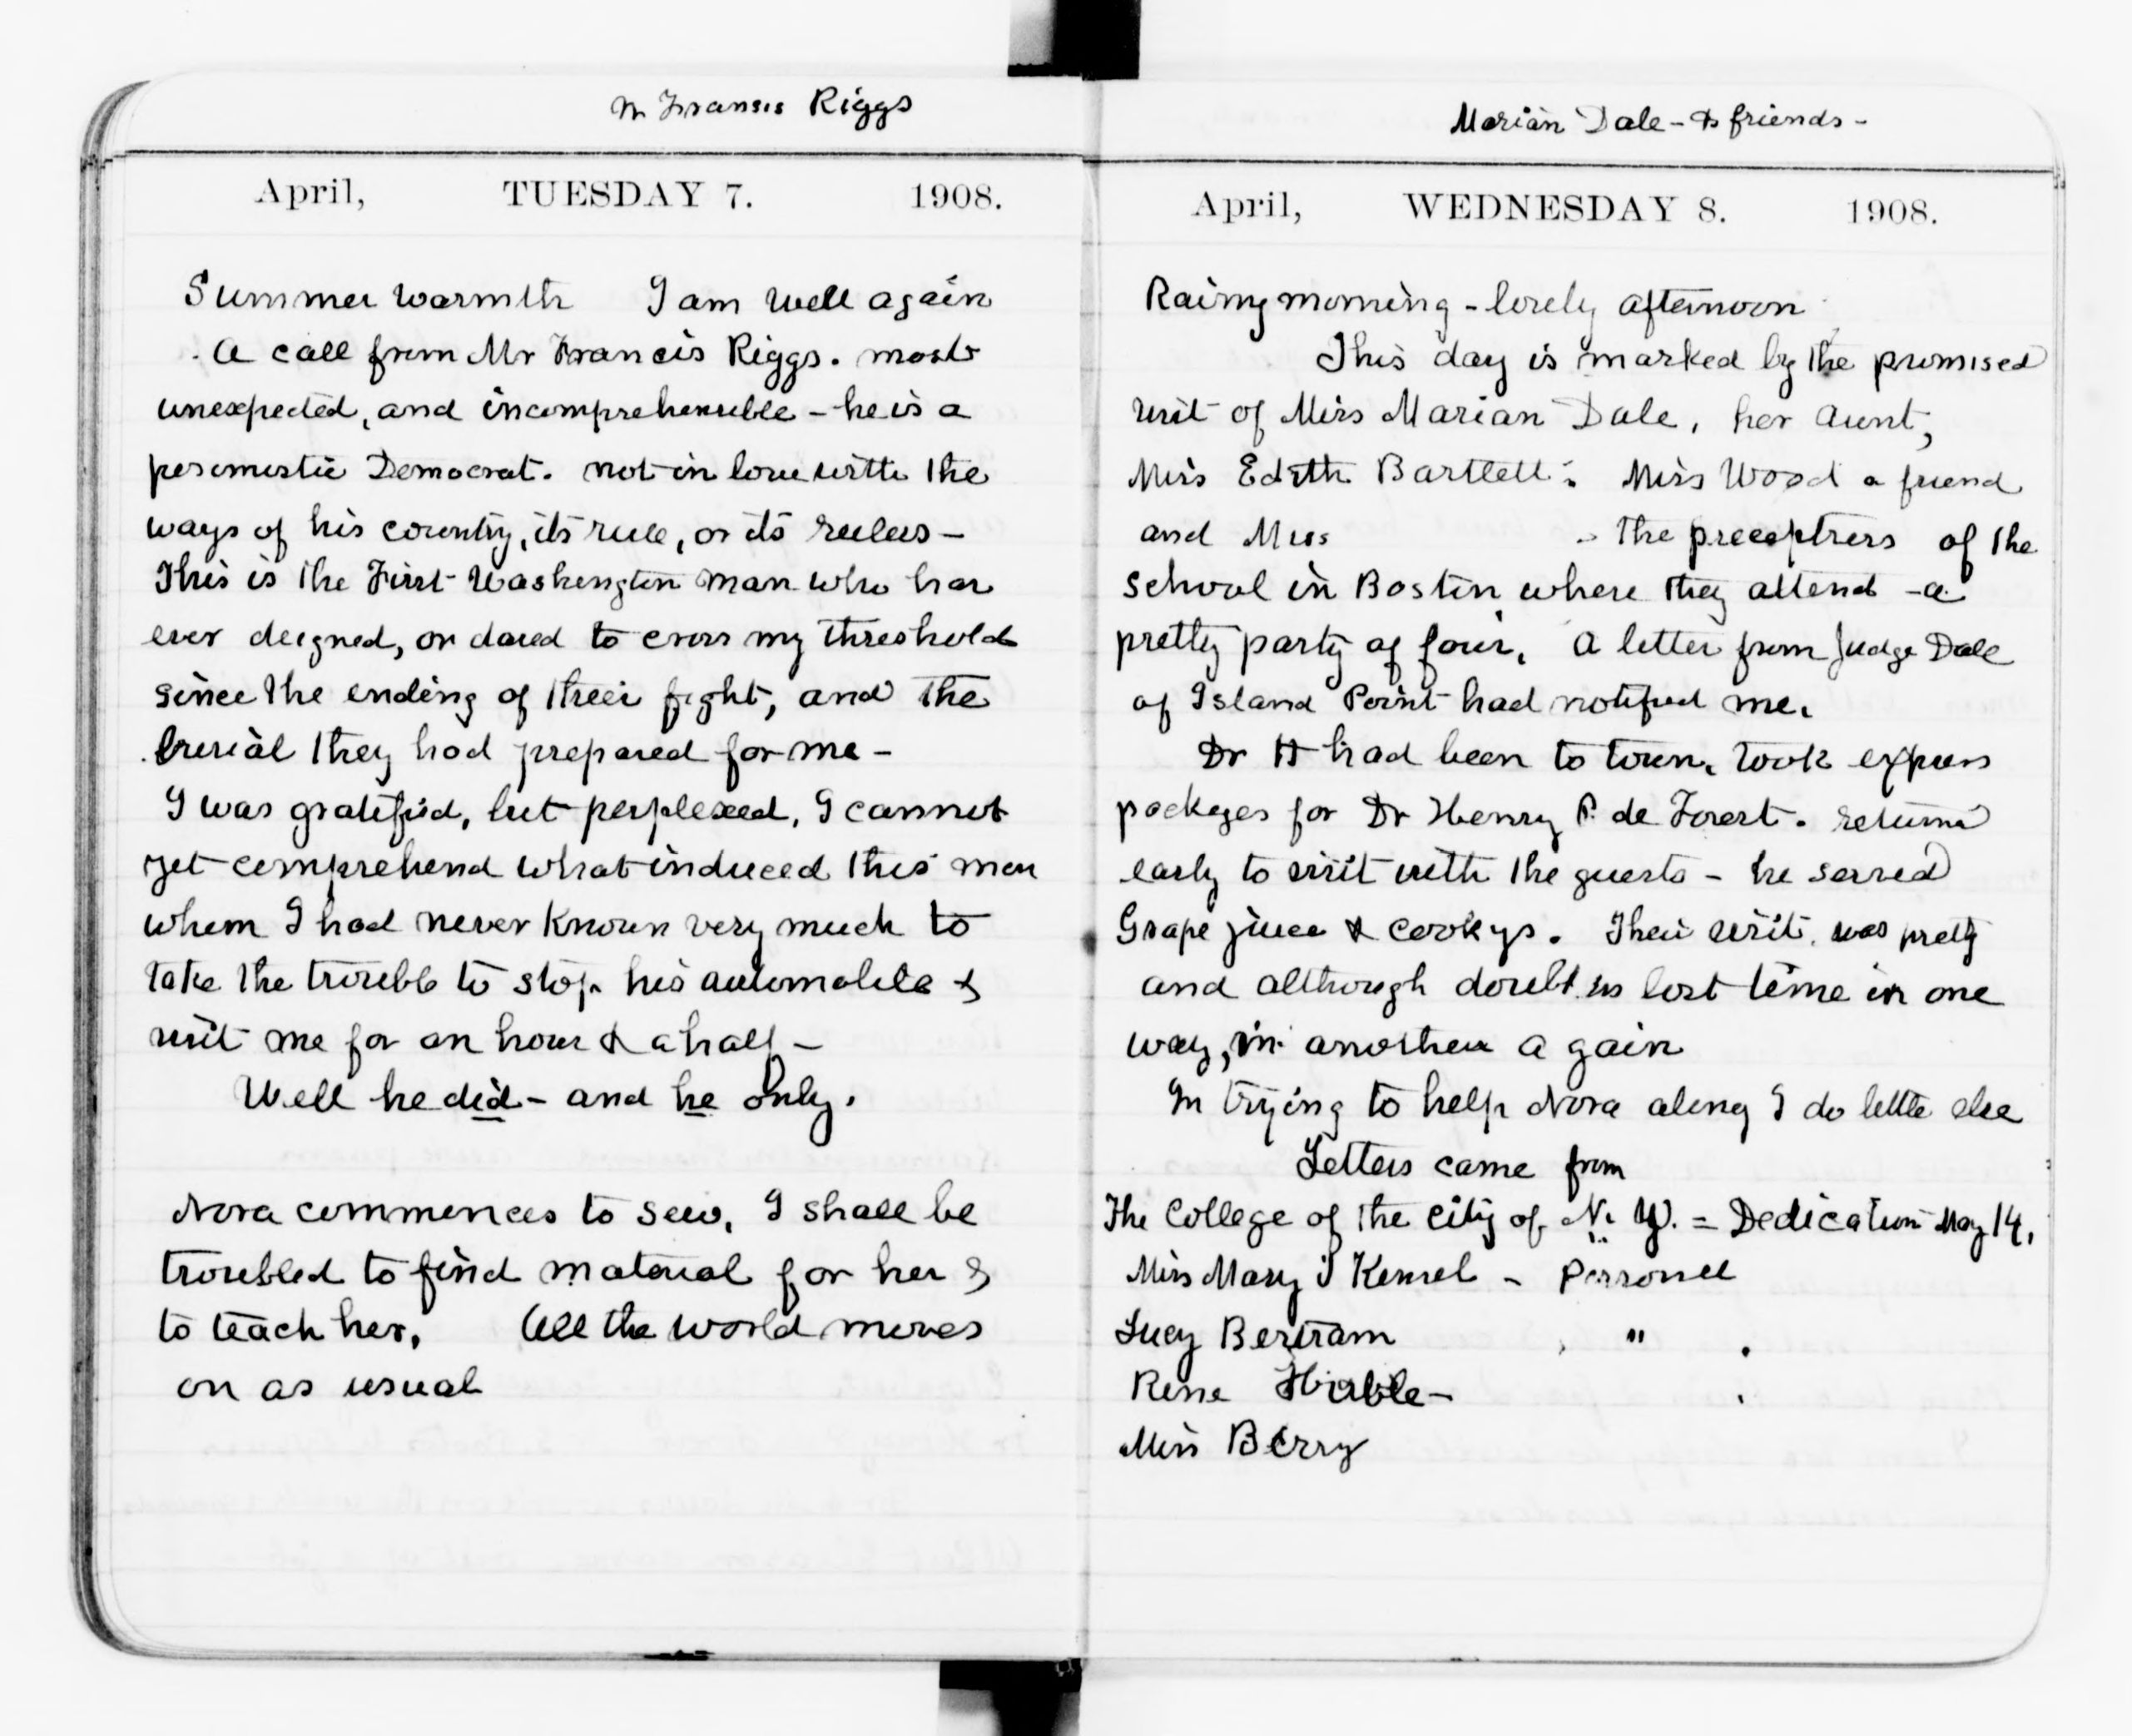 Mr Fransis Riggs
April, TUESDAY 7. 1908.
Summer warmth I am well again
A call from Mr Francis Riggs. most
unexpected, and incomprehensible - he is a
pessimistic Democrat. not in love with the
ways of his country, its rule, or its rulers -
This is the First Washington man who has
ever deigned, or dared to cross my threshold
since the ending of their fight, and the
burial they had prepared for me -
I was gratified, but perplexed, I cannot
yet comprehend what induced this man
whom I had never known very much to
take the trouble to stop his automobile &
visit me for an hour & a half -
Well he did - and he only.
Nora commences to sew, I shall be
troubled to find material for her &
to teach her, All the world moves
on as usual
Marian Dale - & friends -
April, WEDNESDAY 8. 1908.
Rainy morning - lovely afternoon
This day is marked by the promised
visit of Miss Marian Dale, her Aunt,
Miss Edith Bartlett. Miss Wood a friend
and Miss - the preceptress of the
school in Boston where they attend - a
pretty party of four, A letter from Judge Dale
of Island Point had notified me.
Dr H had been to town, took express
packages for Dr Henry P. de Forest. returned
early to visit with the guests - he served
Grape juice & cookys. Their visit was pretty
and although doubt us lost time in one
way, in another a gain
In trying to help Nora along I do little else
Letters came from
The College of the City of N. Y. = Dedication May 14,
Miss Mary J - Personel
Lucy Bertram "
Rene
Miss Berry